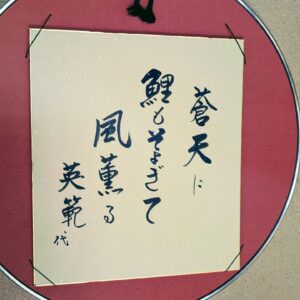 蒼天に
鯉もそよぎて
風薫る
英範代